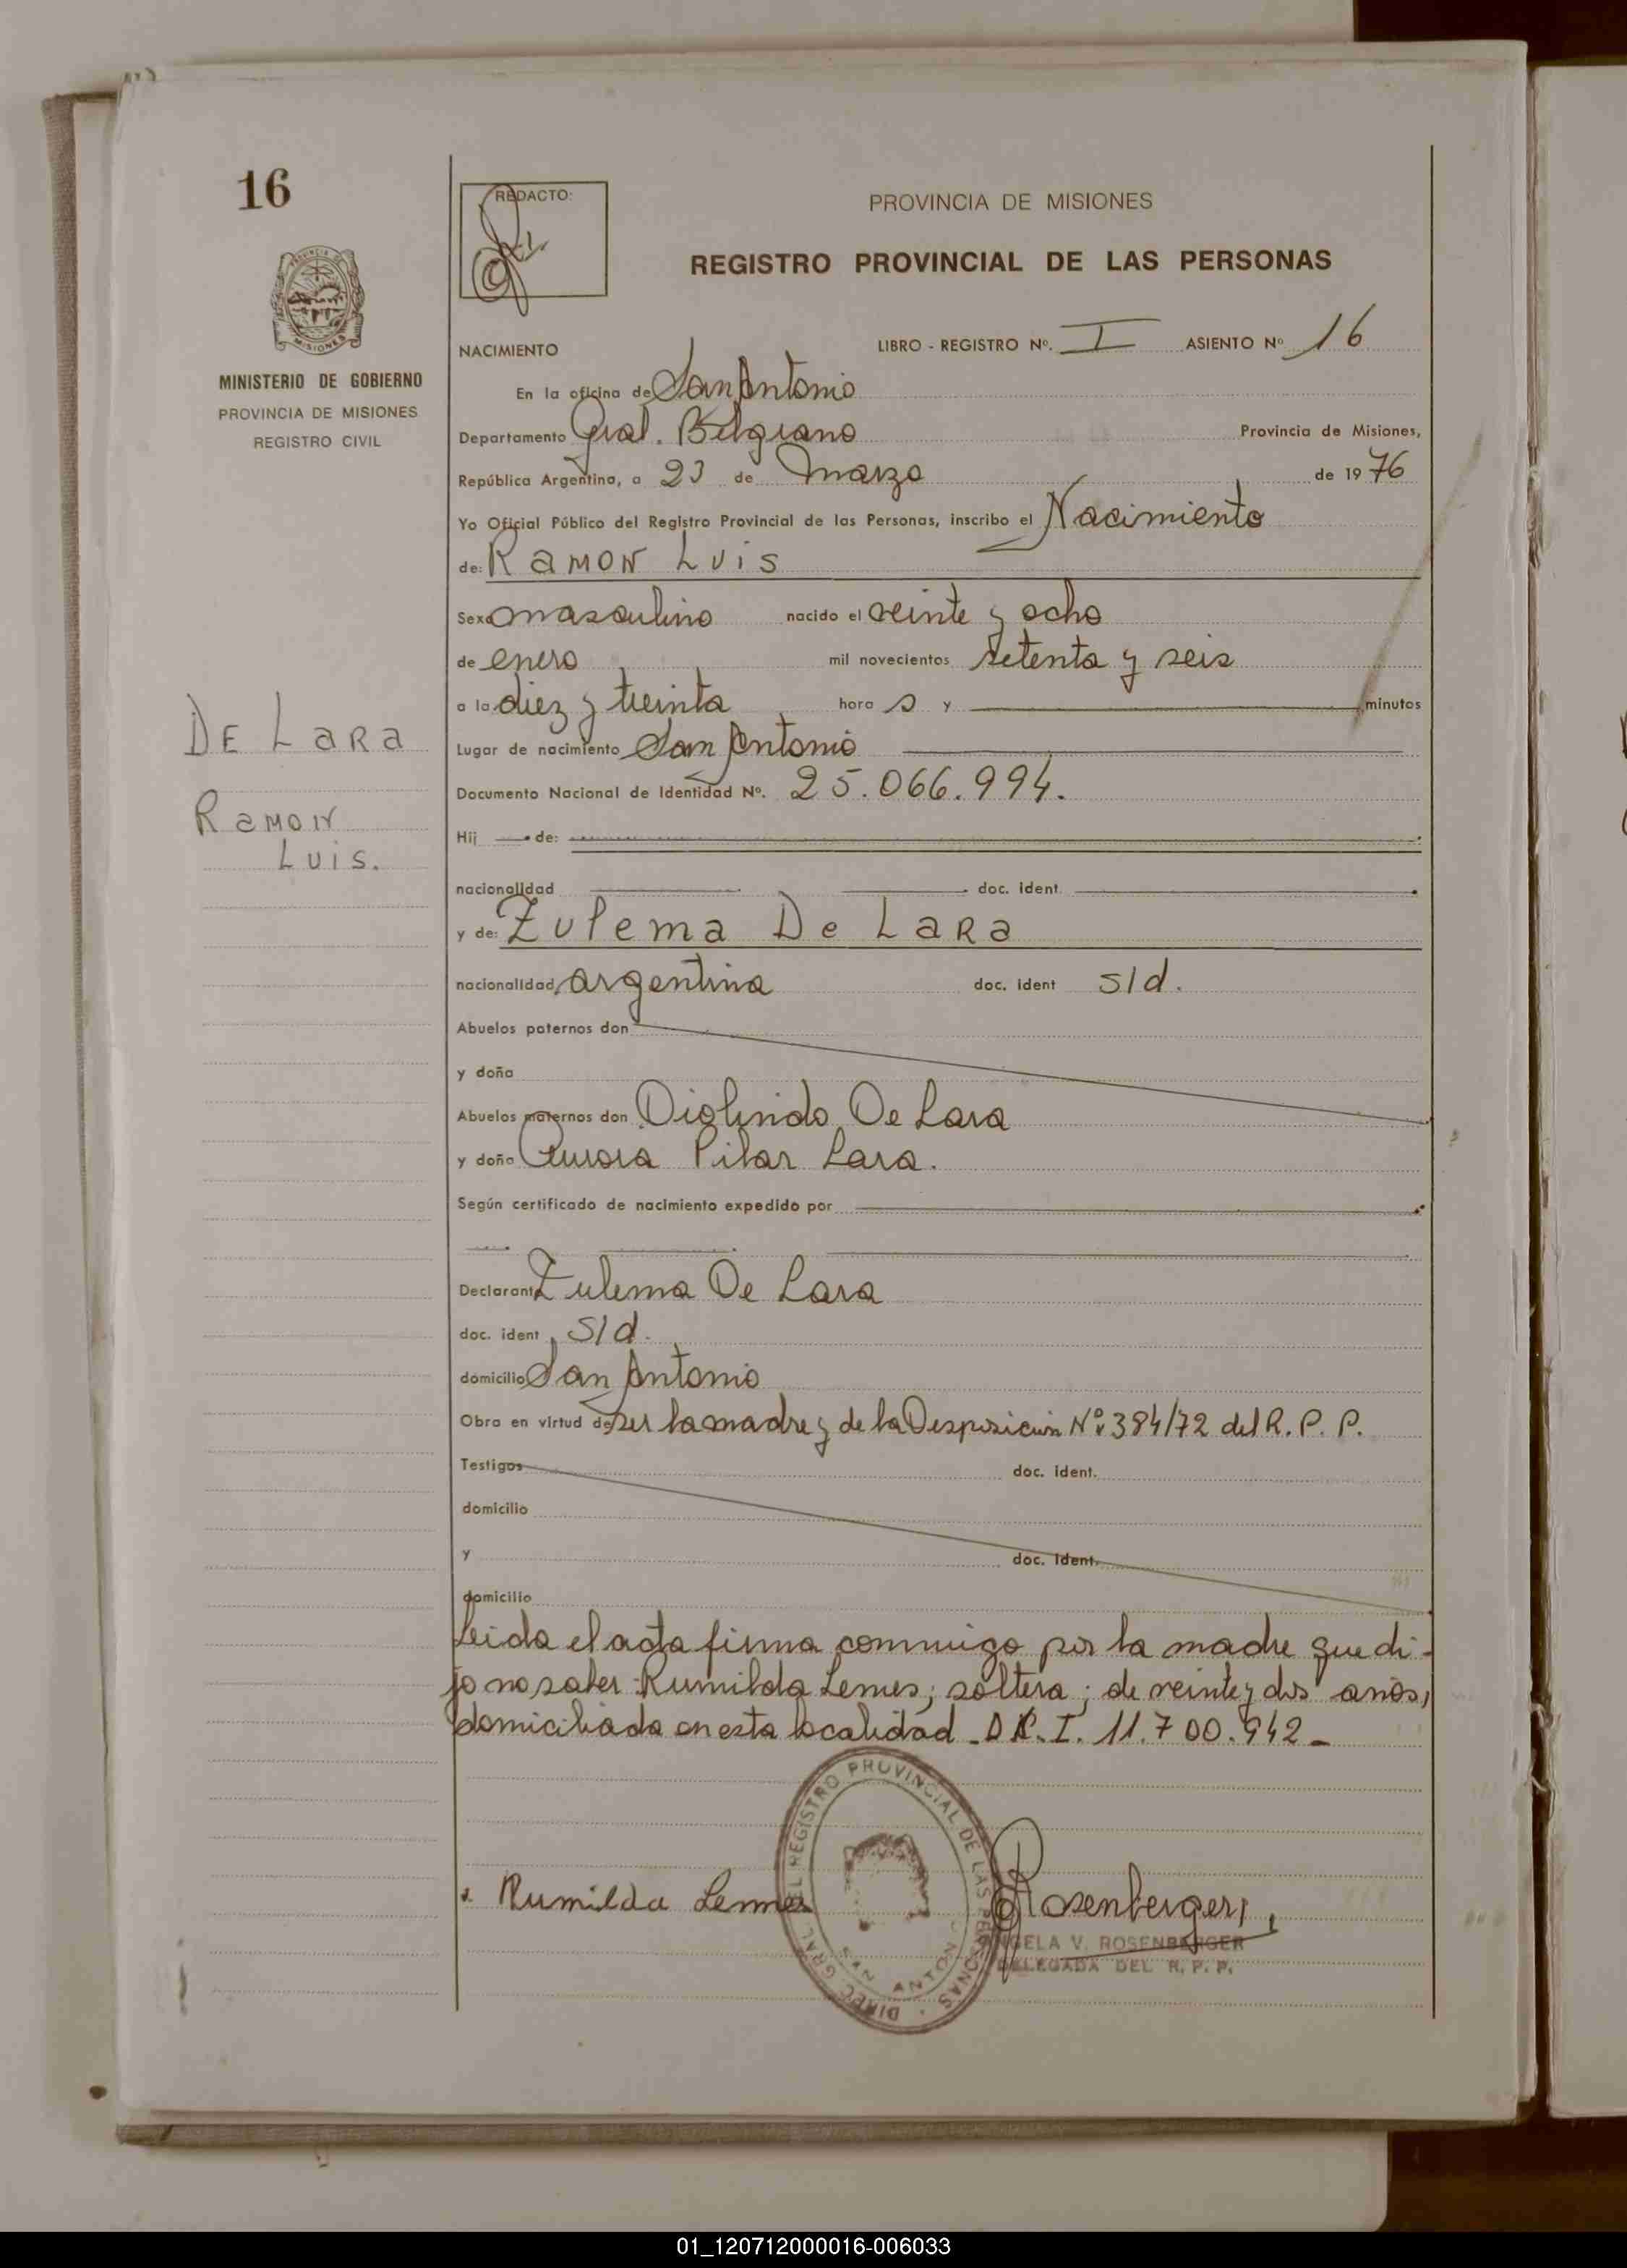 16
REDACTO:
PROVINCIA DE MISIONES
REGISTRO PROVINCIAL DE LAS PERSONAS
MINISTERIO DE GOBIERNO
PROVINCIA DE MISIONES
REGISTRO CIVIL
NACIMIENTO LIBRO - REGISTRO Nº. I ASIENTO Nº 16
En la oficina de San Antonio
Departamento Gral. Belgrano Provincia de Misiones,
República Argentina, a 23 de Marzo de 1976
Yo Oficial Público del Registro Provincial de las Personas, inscribo el Nacimiento
de: Ramon Luis
Sexo masculino nacido el veinte y ocho
de enero mil novecientos setenta y seis
a la diez y treinta hora s y minutos
De Lara
Ramon
Luis.
Lugar de nacimiento San Antonio
Documento Nacional de Identidad Nº. 25.066.994.
Hij de:
nacionalidad doc. ident.
y de: Zulema De Lara
nacionalidad argentina doc. ident s/d.
Abuelos paternos don
y doña
Abuelos maternos don Diolindo De Lara
y doña Aurora Pilar Lara.
Según certificado de nacimiento expedido por
Declarante Zulema De Lara
doc. ident s/d.
domicilio San Antonio
Obra en virtud de ser la madre y de la Desposicion Nº 384/72 del R. P. P.
Testigos doc. ident.
domicilio
y doc. ident.
domicilio
Leida el acta firma conmigo por la madre que di-
jo no saber: Rumilda Lemes; soltera; de veinte y dos años,
domiciliada en esta localidad. D.N.I. 11.700.942-
Rumilda Lemes
Rosenberger
ANGELA V. ROSENBERGER
DELEGADA DEL R. P. P.
DIREC. GRAL. DEL REGISTRO PROVINCIAL DE LAS PERSONAS
SAN ANTONIO
01_120712000016-006033